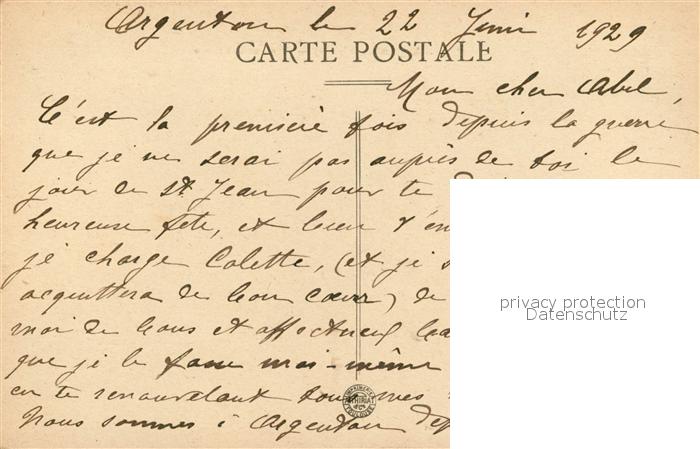 Argenton le 22 Juin 1929
CARTE POSTALE
Mon cher Abel,
C'est la première fois depuis la guerre
que je ne serai pas auprès de toi le
jour de St Jean pour te
heureuse fête, et bien
je charge Colette, (et je
acquittera de bon cœur) de
moi de bons et affectueux
que je le fasse moi-même
en te renouvelant tous mes
Nous sommes à Argenton
privacy protection
Datenschutz